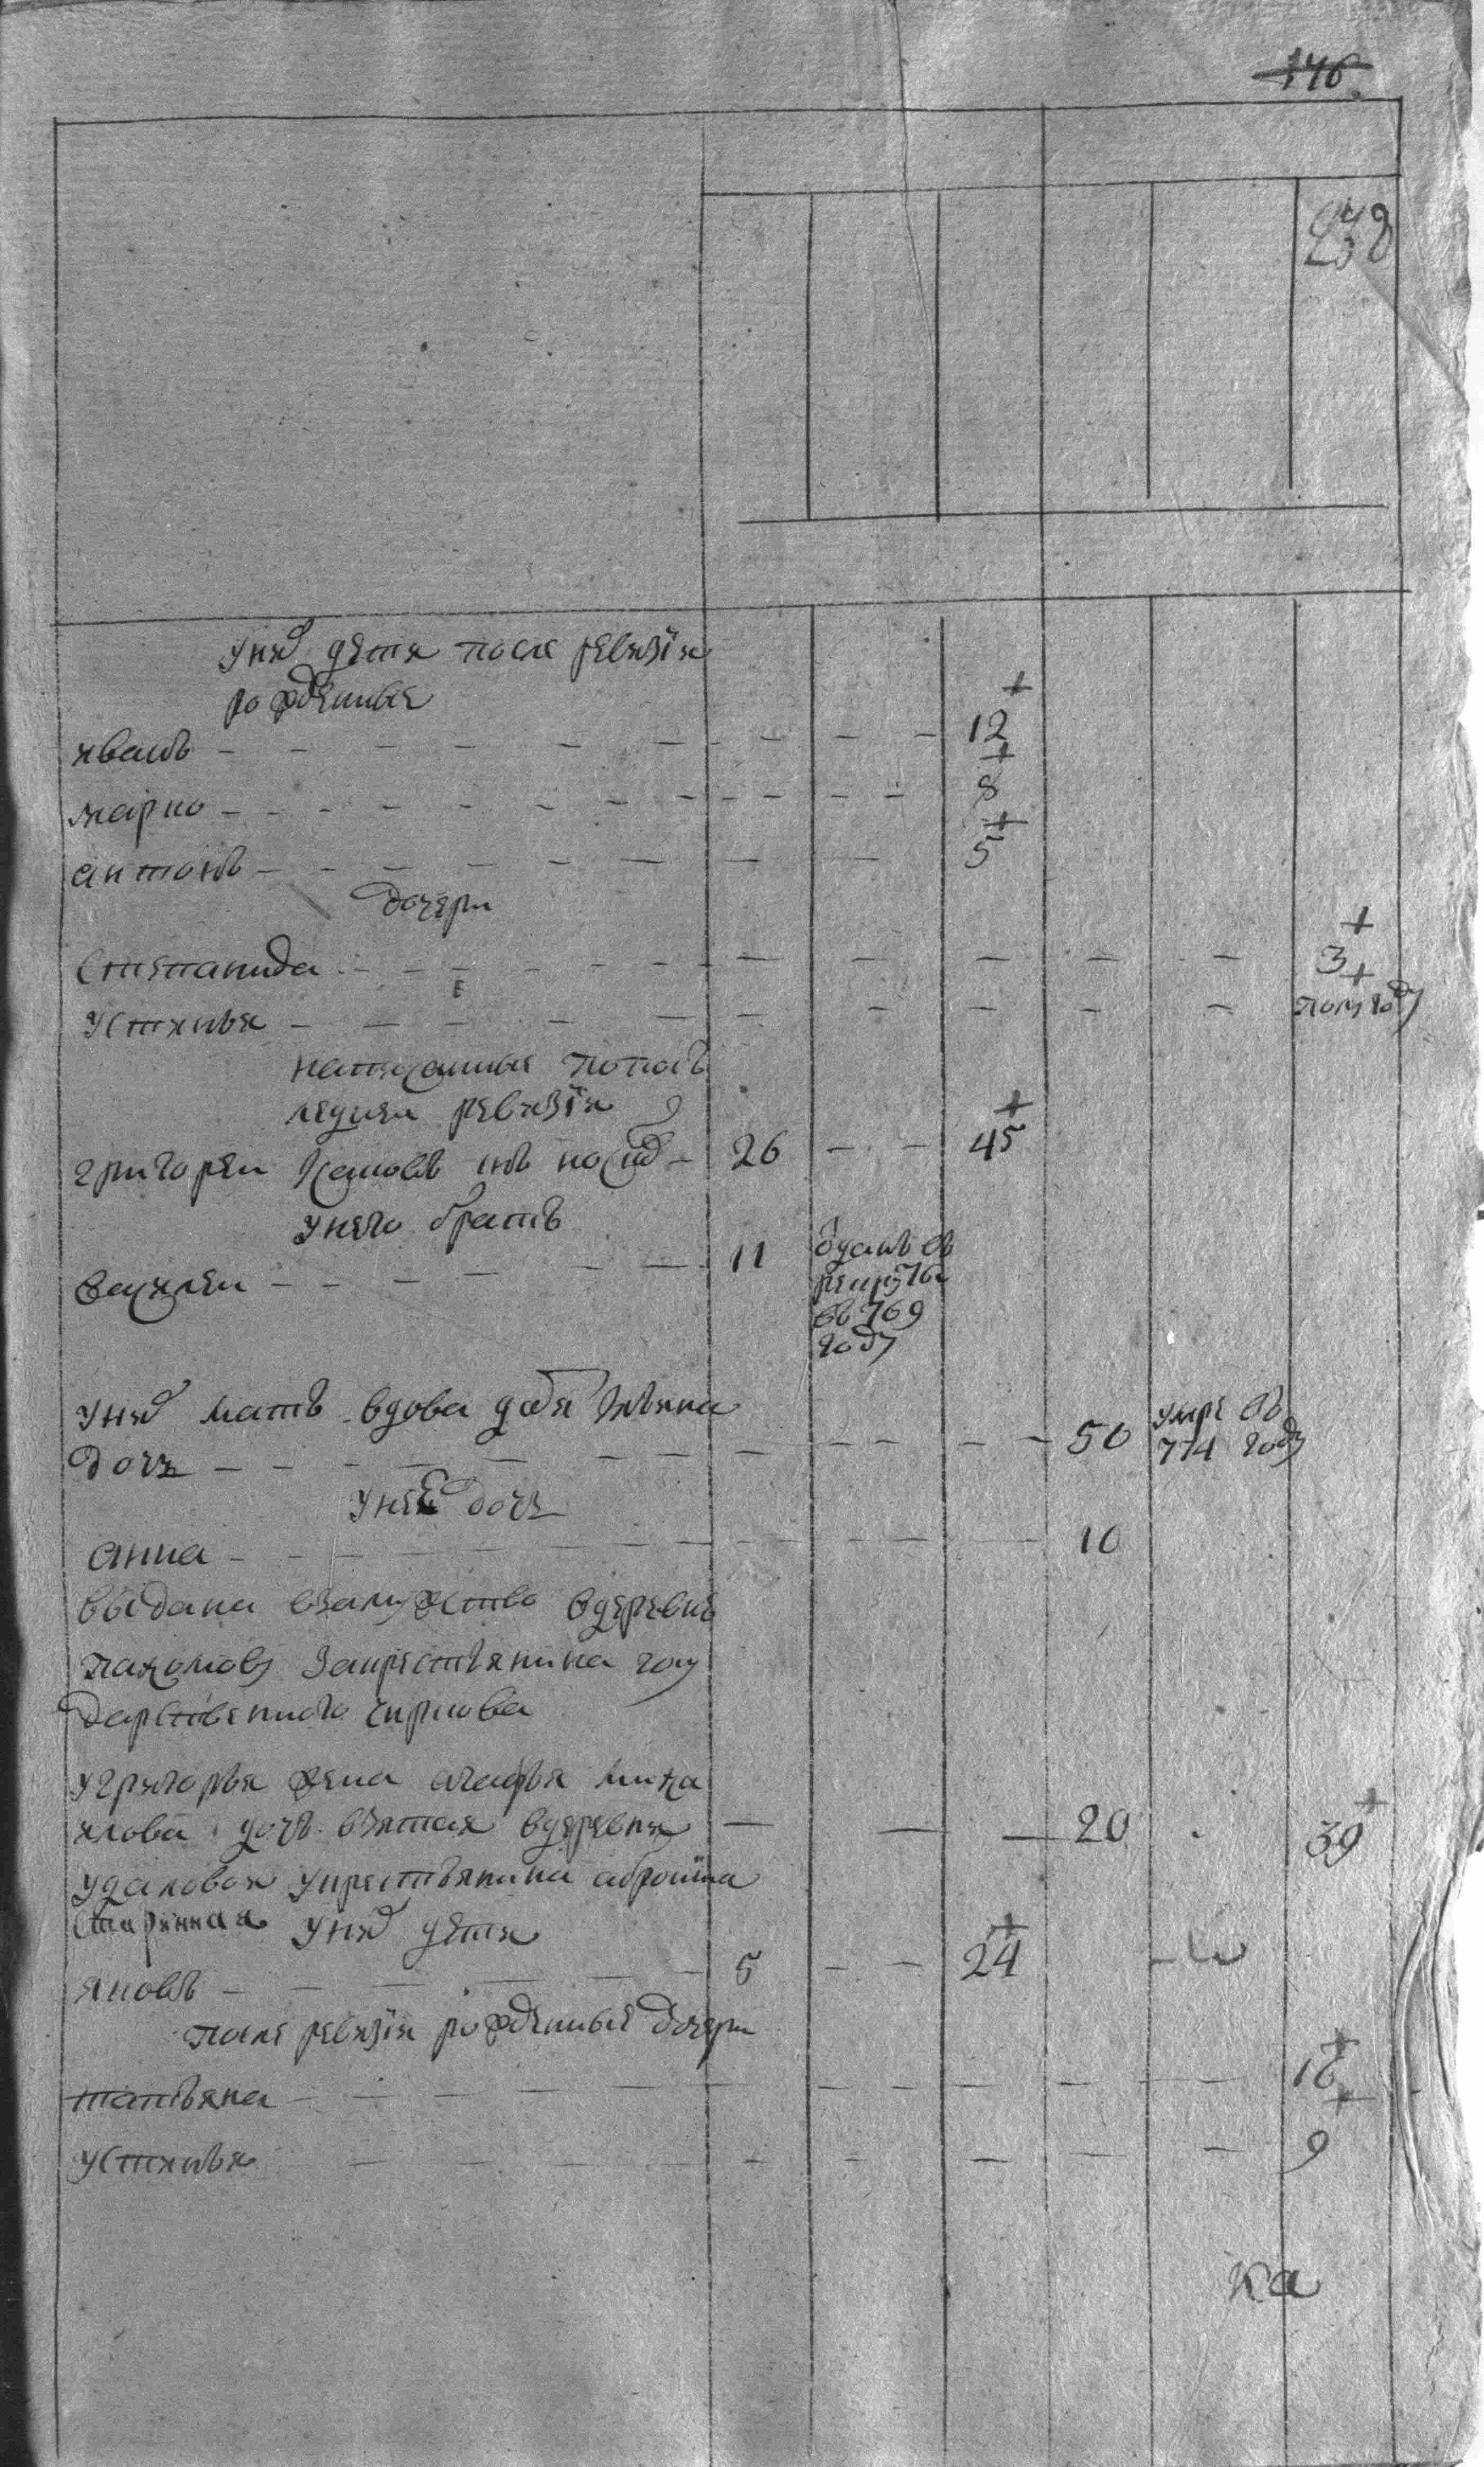 146
248
у них дети после ревизии
рожденные
иванъ - - - - - - 12
марко - - - - - - 8
антонъ - - - - - - 5
дочери
степанида - - - - - - 3
устинья - - - - - - полугоду
написанныя попос
ледней ревизии
григореи снъ 26 - - 45
у него братъ
василеи - - - - - - 11 отданъ въ
рекруты
въ 769
году
у них мать вдова дочь - - - 50 умре въ
774 году
у нее дочь
анна - - - - - - 10
выдана взамужство вдеревню
пахомову закрестьянина госу
дарственного
угригорья жена агафья миха
илова дочь взятая вдеревни - - - 20 39
укрестьянина
старинная у них дети
яковъ - - - 5 - - 24
после ревизии рожденные дочери
татьяна - - - - - - 16
устинья - - - - - - 9